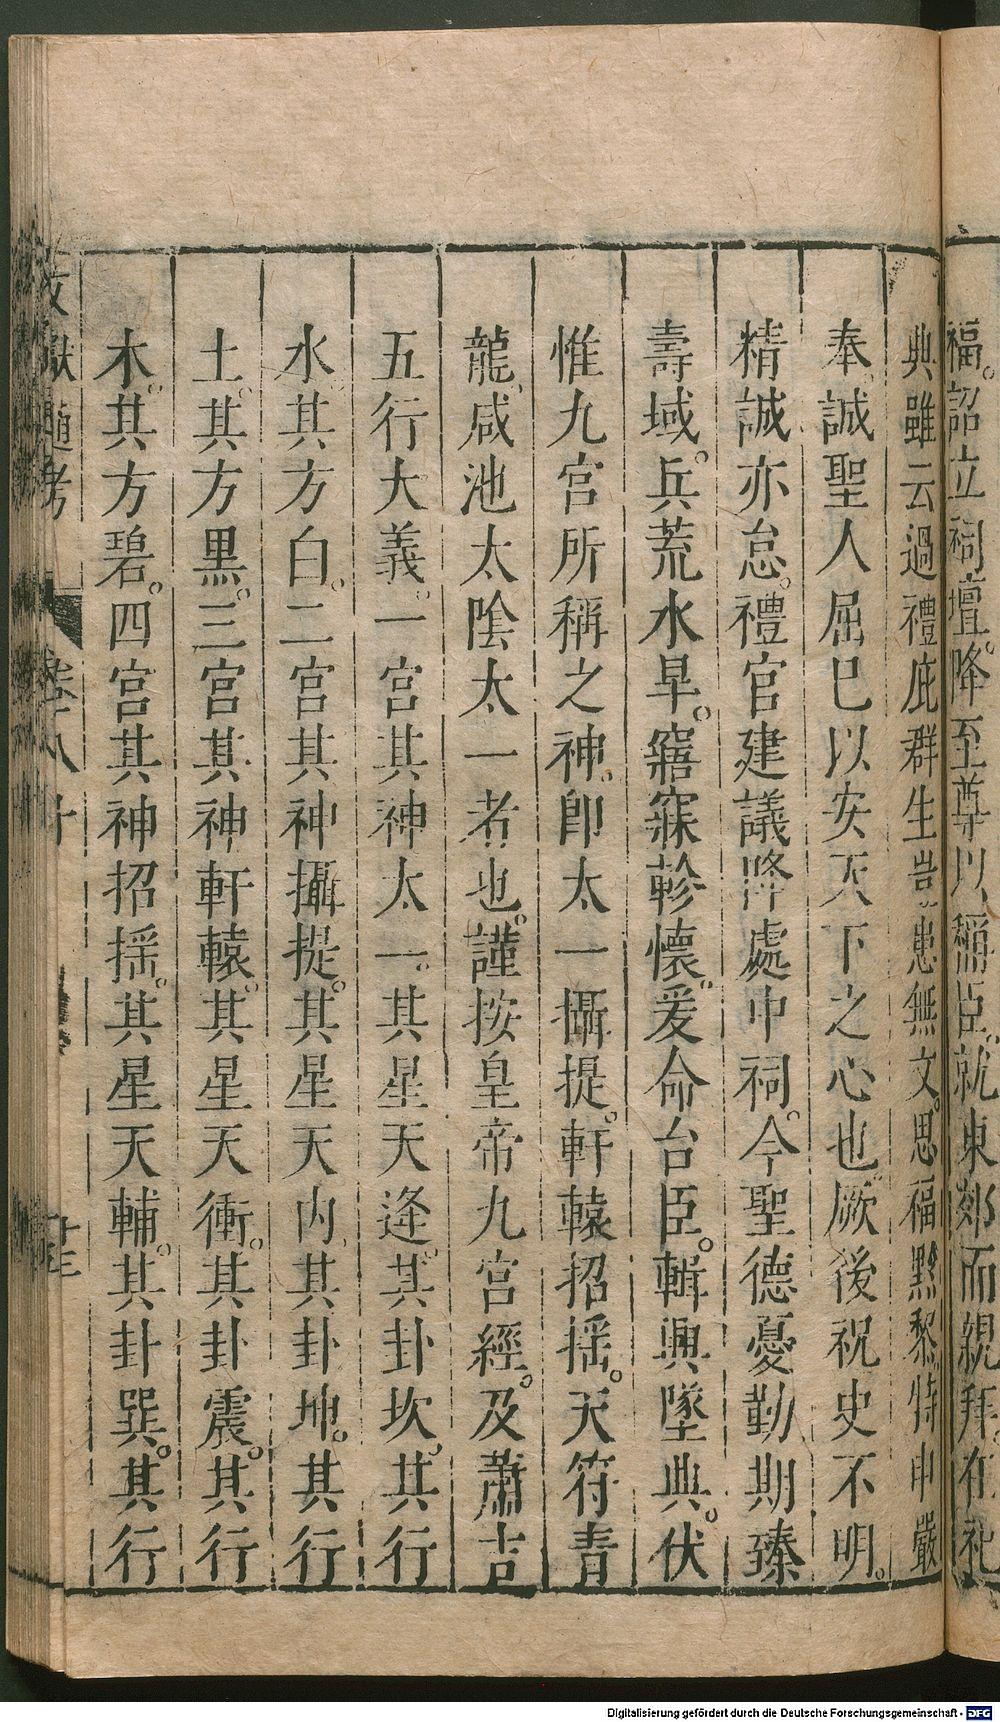 福。詔立祠壇。降至尊以稱臣。就東郊而親拜。在祀
典雖云過禮庇群生豈患無文。思福黔黎。特申嚴
奉。誠聖人屈已以安天下之心也。厥後祝史不明。
精誠亦怠。禮官建議降處中祠。今聖德憂勤期臻
壽域。兵荒水旱。寤寐軫懷。爰命台臣。輯興墜典。伏
惟九宮所稱之神。即太一攝提。軒轅招揺。天符青
龍、咸池太陰太一者也。謹按皇帝九宮經。及蕭吉
五行大義。一宮其神太一。其星天逢。其卦坎。其行
水。其方白。二宮其神攝提。其星天内其卦坤。其行
土。其方黒。三宮其神軒轅。其星天衝。其卦震。其行
木。其方碧。四宮其神招揺。其星天輔。其卦巽。其行
文獻通考 卷八十 十三
Digitalisierung gefördert durch die Deutsche Forschungsgemeinschaft - DFG